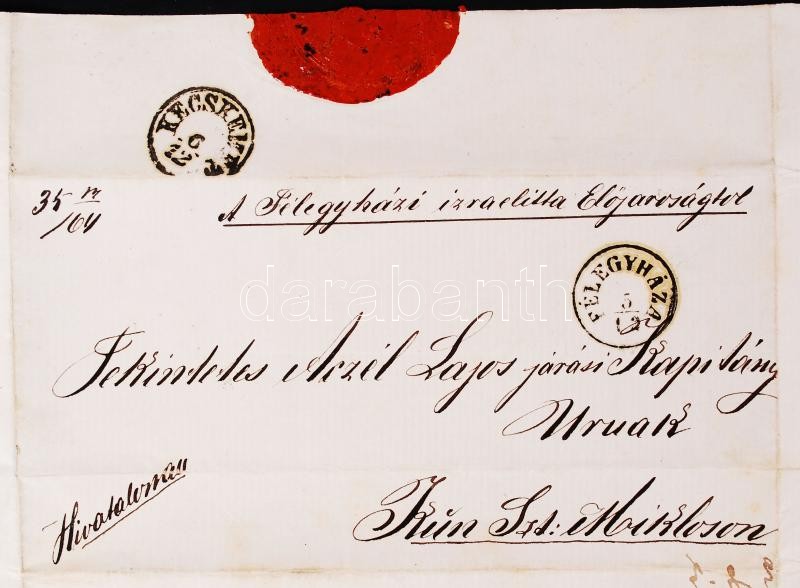 KECSKEMÉT
6
35
/64
A Félegyházi izraelitta Előjaroságtol
FÉLEGYHÁZA
5
12
darabanth
Tekintetes Aczél Lajos járási Kapitány
Urnak
Hivatalosan
Kún Szt: Mikloson